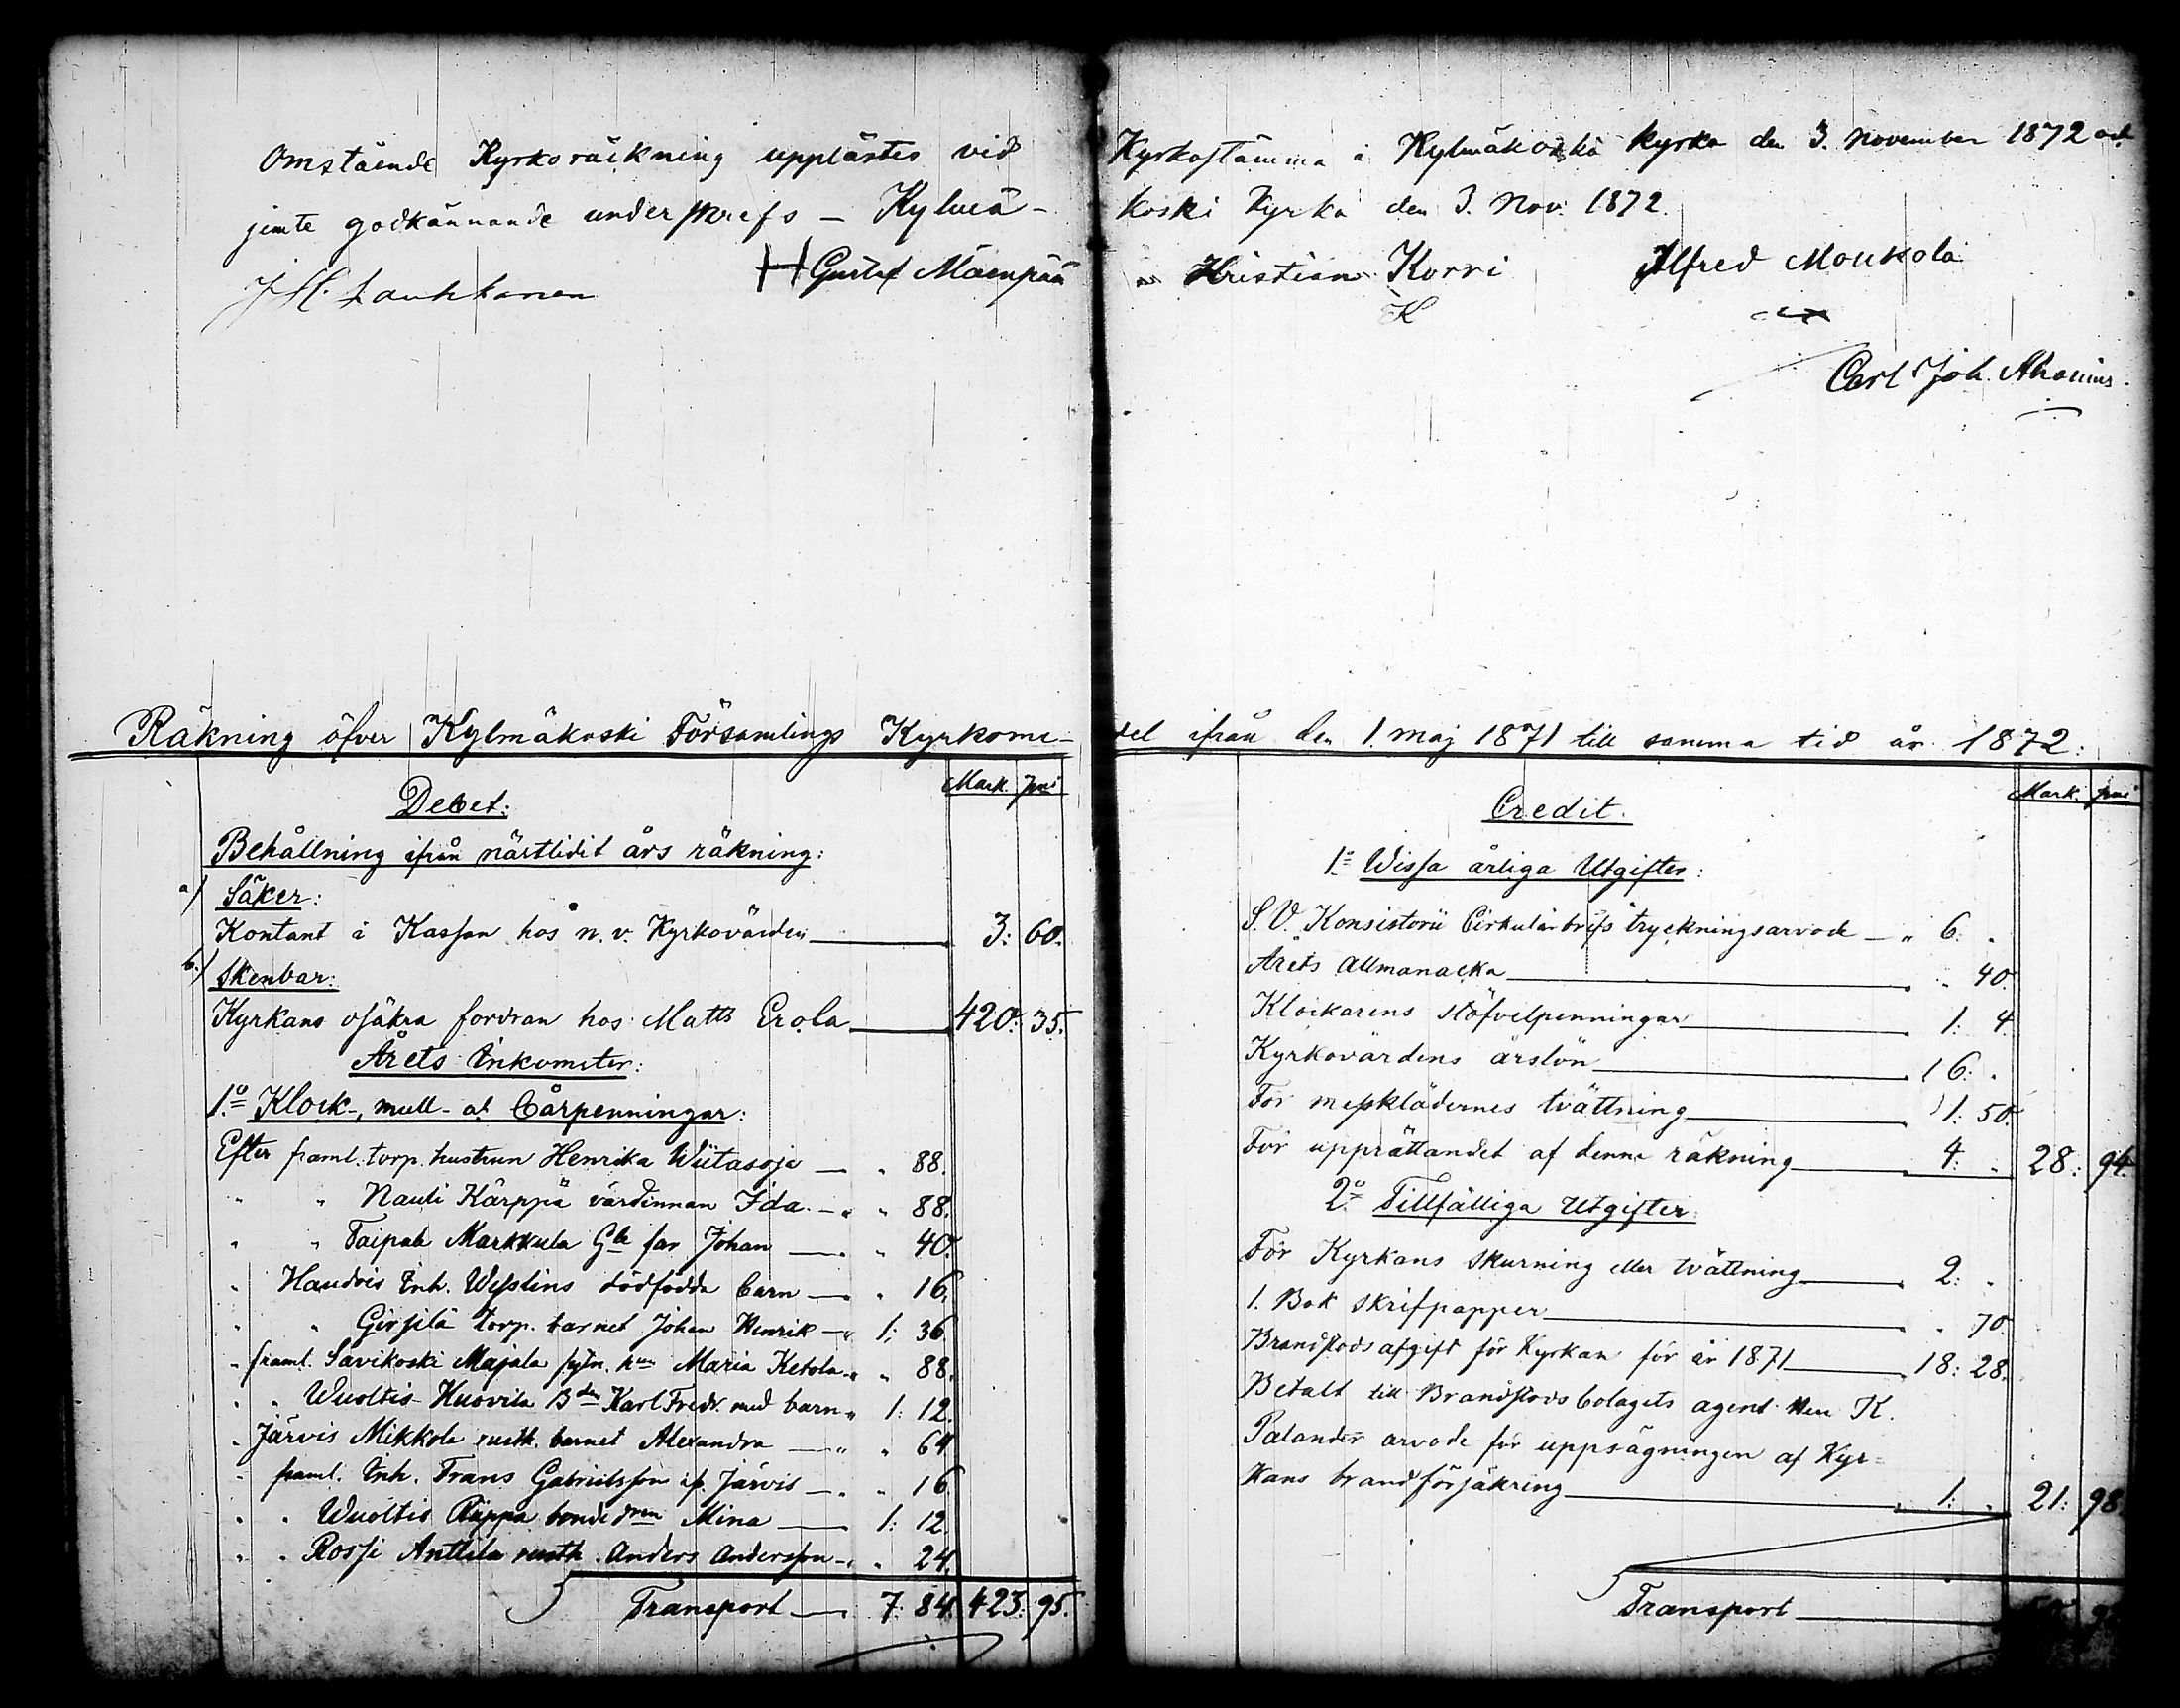 Omstående Kyrkoräkning upplästes vid Kyrkostämma i Kylmäkoski kyrka den 3. November 1872 och
jemte godkännande underskrefs – Kylmä-koski Kyrka den 3. Nov. 1872.
Gustaf Mäenpää Kristian Korri Alfred Moukola
K
Carl Joh. Ahonius.
Räkning öfver Kylmäkoski Församlings Kyrkome-del ifrån den 1. maj 1871 till samma tid år 1872:
Mark. pni
Debet:
Behållning ifrån nästlidit års räkning:
a) Säker:
Kontant i Kassan hos n. v. Kyrkovärden 3: 60.
b.) Skenbar:
Kyrkans osäkra fordran hos Matts Erola 420: 35.
Årets Inkomster:
1:o Klock-, mull- o! Bårpenningar:
Efter framl. torp. hustrun Henrika Wiitasoja — " 88.
" " Nauli Kärppä värdinnan Ida. — " " 88.
" " Taipale Markkula Gle far Johan — " 40.
" Haudvis Inh. Wesslins dödfödda barn — " 16.
" " Girsilä torp. barnet Johan Henrik — " 1: 36
" framl. Savikoski Majala sytn. hun Maria Ketola " " 88.
" " Wuoltis Huovila Bden Karl Fredr. med barn " 1: 12.
" Järvis Mikkola rusth. barnet Alexandra — " " 64
" framl. Inh. Frans Gabrielsson ifr. Järvis — " " 16
" " Wuoltis Riippa bonde Mina — 1: 12.
" " Rossi Anttila rusth. Anders Andersson — " " 24.
Transport — 7: 84. 423: 95.
Mark. pni
Credit.
1:o Wissa årliga Utgifter:
S. V. Konsistorii Cirkulärbrefs tryckningsarvode — " 6: "
Årets Allmanacka " 40.
Klockarens stöfvelpenningar 1: 4.
Kyrkovärdens årslön 16: "
För messklädernes tvättning 1: 50.
För upprättandet af denna räkning 4: " 28: 94.
2:o Tillfälliga Utgifter:
För Kyrkans skurning eller tvättning 2: "
1. Bok skrifpapper " 70.
Brandstodsafgift för Kyrkan för år 1871 18: 28.
Betalt till Brandstodsbolagets agent Herr K.
Palander arvode för uppsägningen af Kyr-
kans brandförsäkring 1: " 21: 98.
Transport